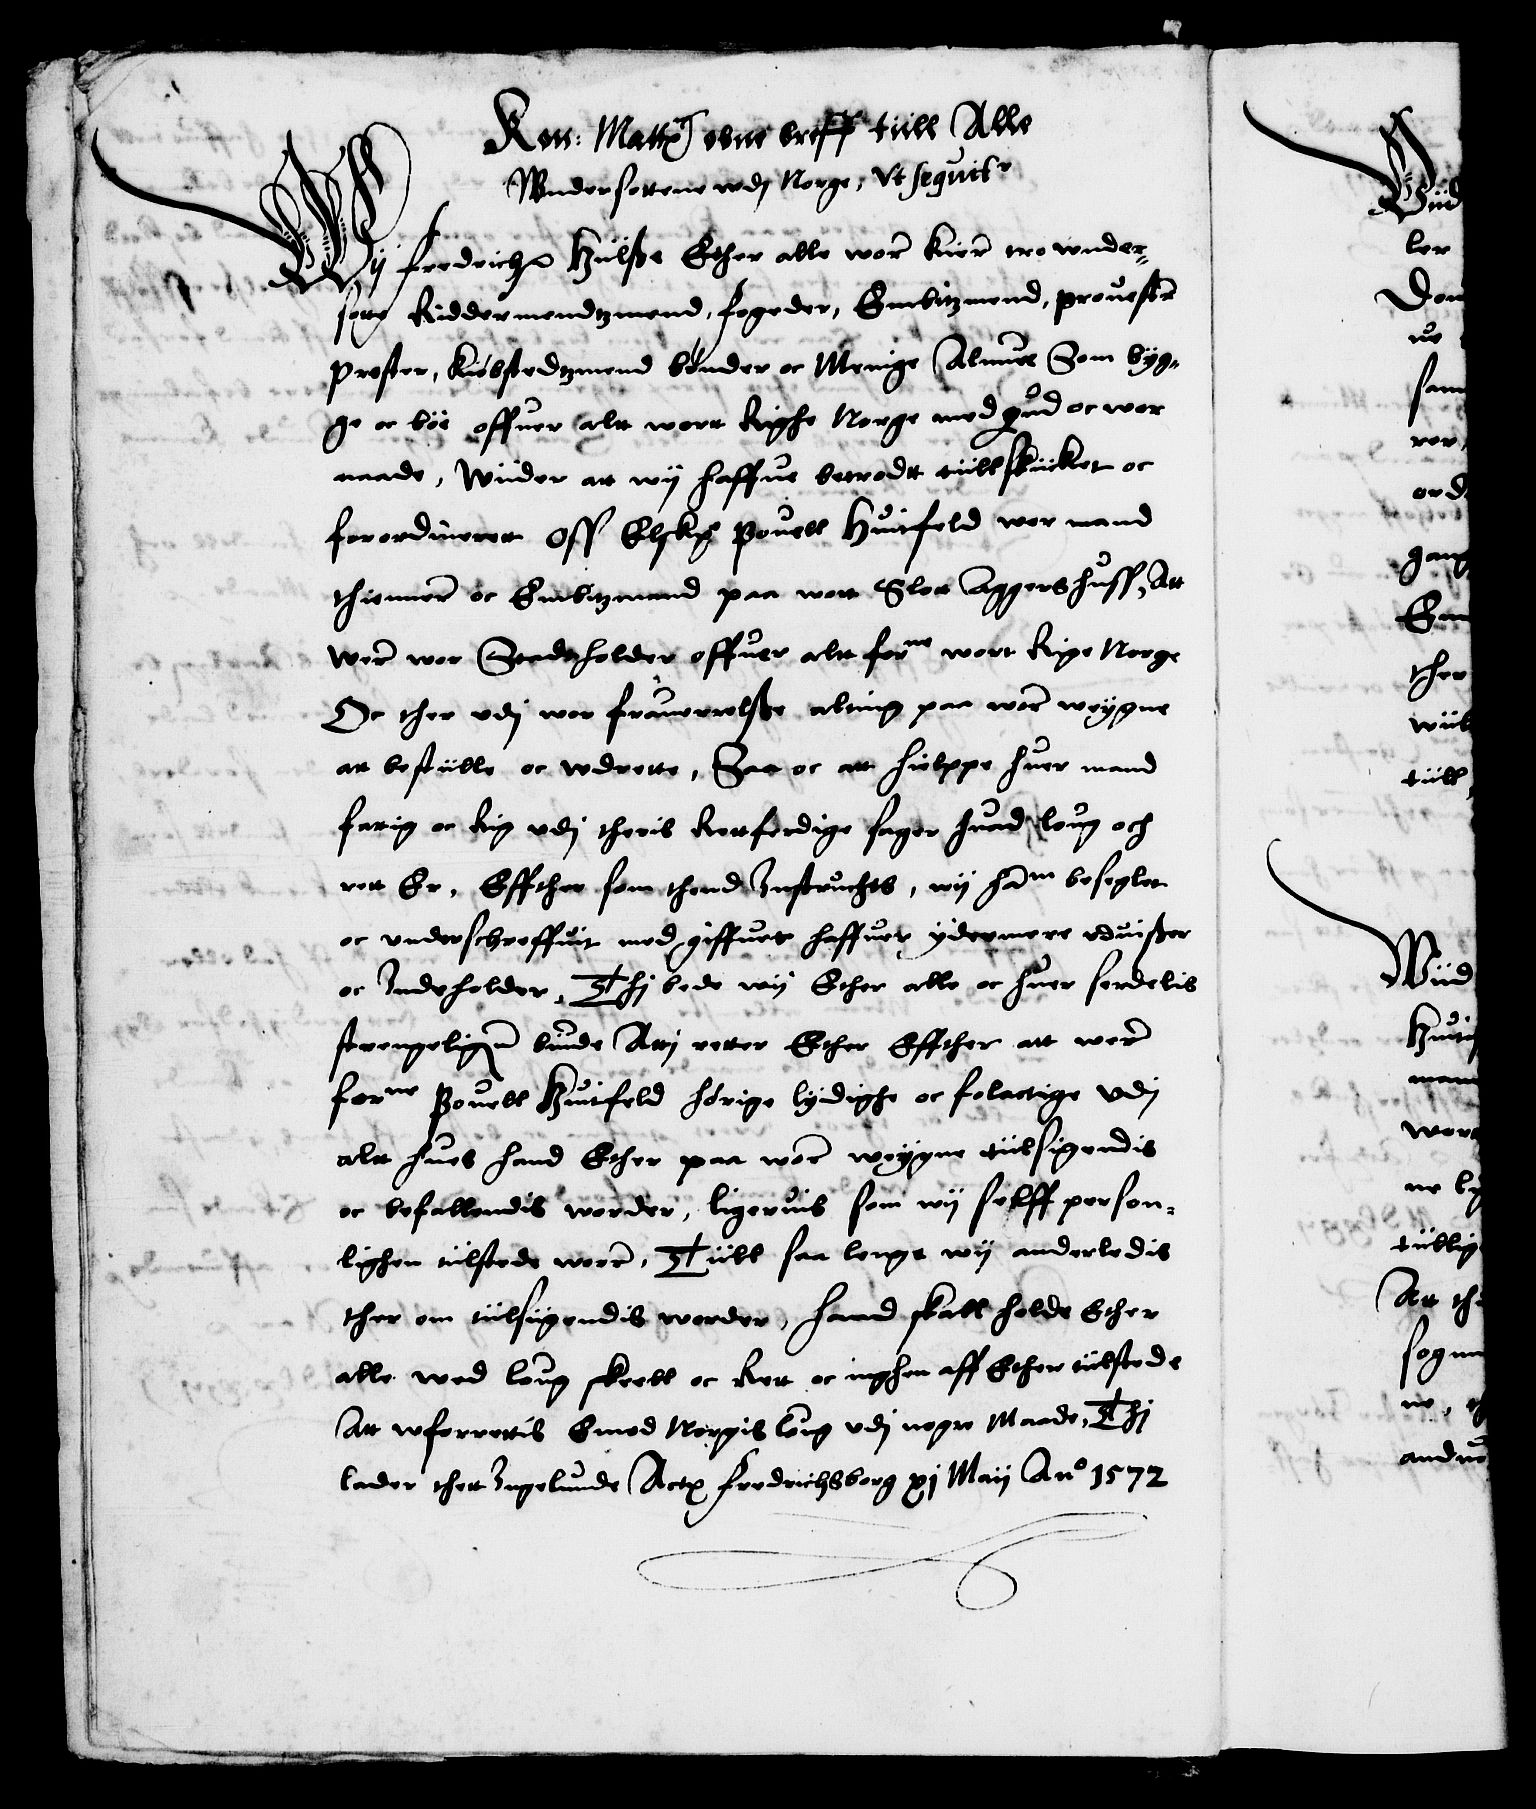 Kon: Mattz obne breff tiill Alle
Wndersottene wdj Norge, Vt sequit͛
Wij fredrichz Hiilße Ether alle wor̃ kier̃ tro wnder⸗
sotte Riddermendtzmend, fogeder, Embitzmend, prouestr̃
prester, kiøbstedtzmend bønder oc Menige Almue Som byg⸗
ge oc boe offuer altt wortt Righe Norge med gud oc wor
naade, Wiider att wij haffue betrodtt tiillskicket oc
forordineret Oss Elskẹ Pouell Huitfeld wor mand
thienner̃ oc Embitzmand paa wort Slot Aggershuss, Att
Wer̃ wor Stadtholder offuer altt forne wort Rige Norge
Oc ther vdj wor frauerrelße alting paa wor̃ weygne
att bestiille oc wdrette, Saa oc att hielppe huer mand
fattig oc Rig vdj theris Rettferdige sager huad loug och
rett Er, Effther som thend Instruchts, wij ham beseglet
oc vnderschreffuit med giffuet haffuer ydermere vduißer
oc Indeholder, Thj bede wij Ether alle oc huer serdelis
strengelig̃ biude Attj retter Ether Effther att wer̃
forne Pouell Huitfeld hørige lydighe oc folactige Vdj
altt hues hand Ether paa wor̃ weygne tiilsigendis
oc befallendis worder, ligeruis som wij selff person⸗
lighen tilstede wore, Tiill saa lenge wij anderledis
ther om tiilsiigendis worder, hand skall holde Ether
alle wed loug skeell oc Rett oc inghen aff Ether tiilstede
Att wforrettis Emod Norgis loug vdj nogre Maade, Thj
lader thett Ingelunde Actz fredrichsborg xj Maij Ano 1572